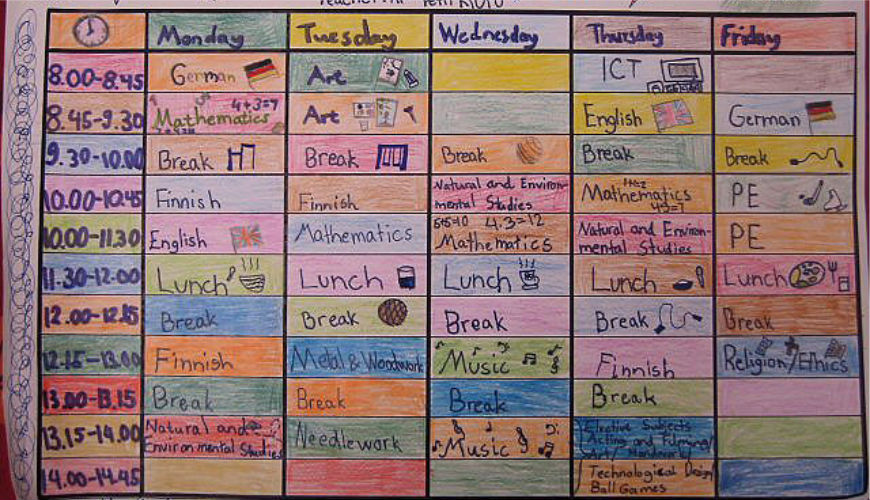 Monday Tuesday Wednesday Thursday Friday
8.00-8.45 German Art ICT
8.45-9.30 4+3=7 Mathematics Art English German
9.30-10.00 Break Break Break Break Break
10.00-10.45 Finnish Finnish Natural and Environ-
mental Studies Mathematics PE
10.00-11.30 English Mathematics 5+5=10 4.3=12
Mathematics Natural and Environ-
mental Studies PE
11.30-12.00 Lunch Lunch Lunch Lunch Lunch
12.00-12.15 Break Break Break Break Break
12.15-13.00 Finnish Metal & Woodwork Music Finnish Religion/Ethics
13.00-13.15 Break Break Break Break
13.15-14.00 Natural and
Environmental Studies Needlework Music Elective Subjects
Acting and Filming/
Art/
14.00-14.45 Technological Design
Ball Games